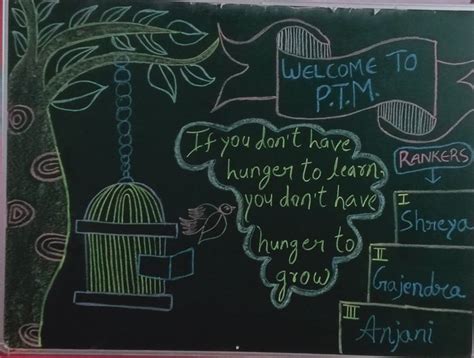 WELCOME TO
P.T.M.
If you don't have
hunger to learn,
you don't have
hunger to
grow
RANKERS
I
Shreya
II
Gajendra
III
Anjani